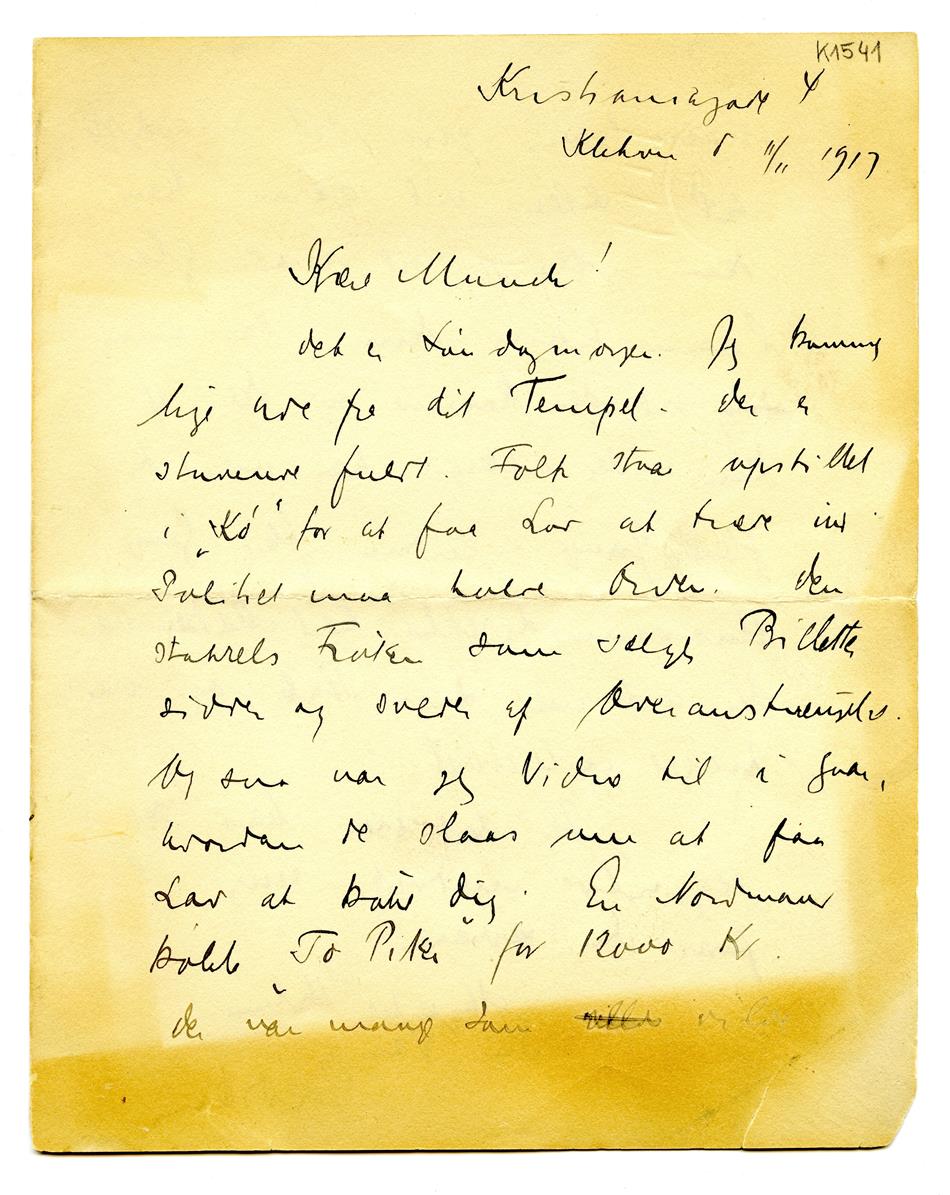 K1541
Kristianiagade 4
Kbhvn Ø 11/11 1917
Kære Munch!
det er Søndagmorgen. Jeg kommer
lige nede fra dit Tempel. der er
stuvende fuldt. Folk staar opstillet
i „Kø" for at faa Lov at træde ind
Politiet maa holde Orden. den
stakkels Frøken som sælger Billetter
sidder og sveder af Overanstrengelse.
Og saa var jeg Vidne til i Gaar,
hvordan de slaas om at faa
Lov at købe dig. En Nordmand
købte „To Piker" for 12000 Kr.
der var mange som vilde